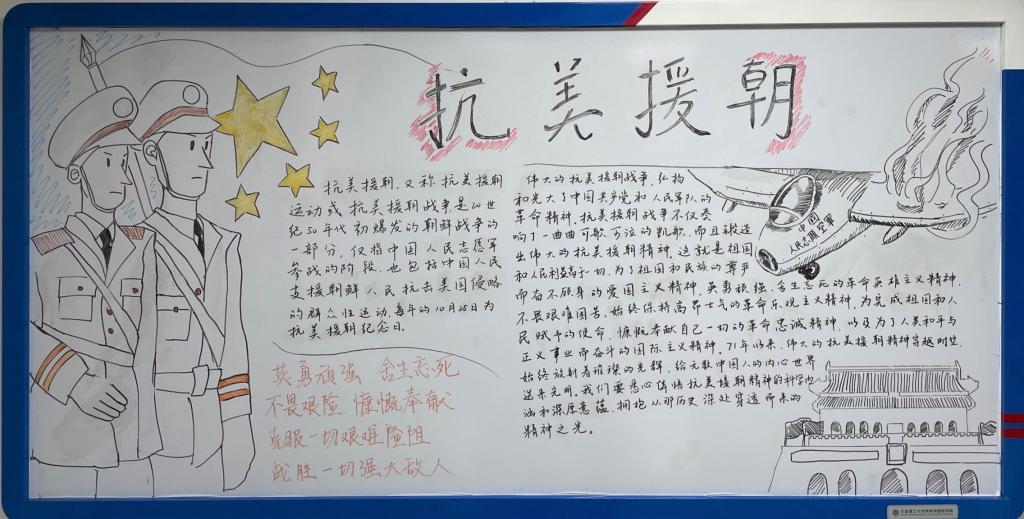 抗美援朝
抗美援朝,又称抗美援朝
运动或抗美援朝战争是20世
纪50年代初爆发的朝鲜战争的
一部分,仅指中国人民志愿军
参战的阶段,也包括中国人民
支援朝鲜人民抗击美国侵略
的群众性运动,每年的10月25日为
抗美援朝纪念日。
英勇顽强 舍生忘死
不畏艰险 慷慨奉献
克服一切艰难险阻
战胜一切强大敌人
伟大的抗美援朝战争,弘扬
和光大了中国共产党和人民军队的
革命精神,抗美援朝战争不仅奏
响了一曲曲可歌可泣的凯歌,而且锻造
出伟大的抗美援朝精神,这就是祖国
和人民利益高于一切,为了祖国和民族的尊严
而奋不顾身的爱国主义精神,英勇顽强、舍生忘死的革命英雄主义精神,
不畏艰难困苦、始终保持高昂士气的革命乐观主义精神,为完成祖国和人
民赋予的使命、慷慨奉献自己一切的革命忠诚精神,以及为了人类和平与
正义事业而奋斗的国际主义精神。71年以来,伟大的抗美援朝精神跨越时空,
始终放射着璀璨的光辉,给无数中国人的内心世界
送来光明,我们要悉心体悟抗美援朝精神的科学内
涵和深厚意蕴,拥抱从那历史深处穿透而来的
精神之光。
中国
人民志愿空军